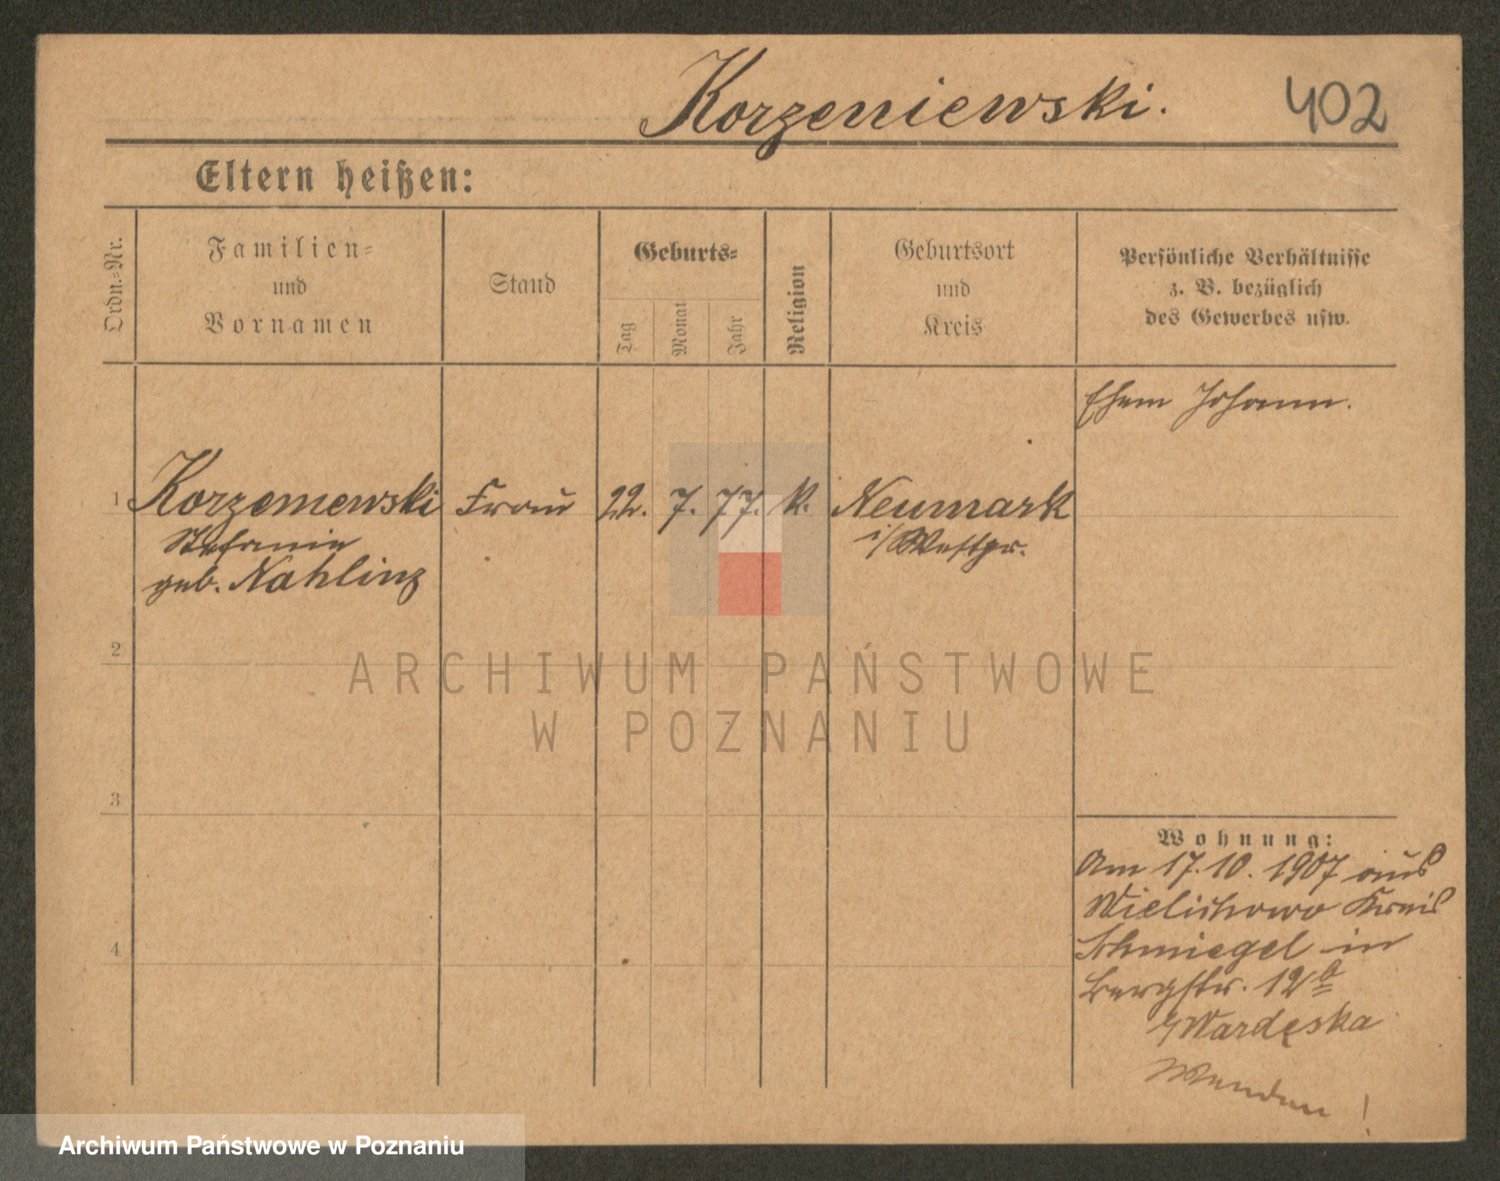 Korzeniewski.
402
Eltern heißen:
Ordn.-Nr.
Familien-
und
Vornamen
Stand
Geburts-
Tag
Monat
Jahr
Religion
Geburtsort
und
Kreis
Persönliche Verhältnisse
z. B. bezüglich
des Gewerbes usw.
Ehem Johann.
1 Korzeniewski Frau 22. 7. 77. k. Neumark
Stefanie i/Westpr.
geb. Nahlinz
2
ARCHIWUM PAŃSTWOWE
W POZNANIU
3
Wohnung:
Am 17.10.1907 aus
Wielichowo Kreis
Schmiegel in
4
Bergstr. 12b
Wardęska
Wenden!
Archiwum Państwowe w Poznaniu